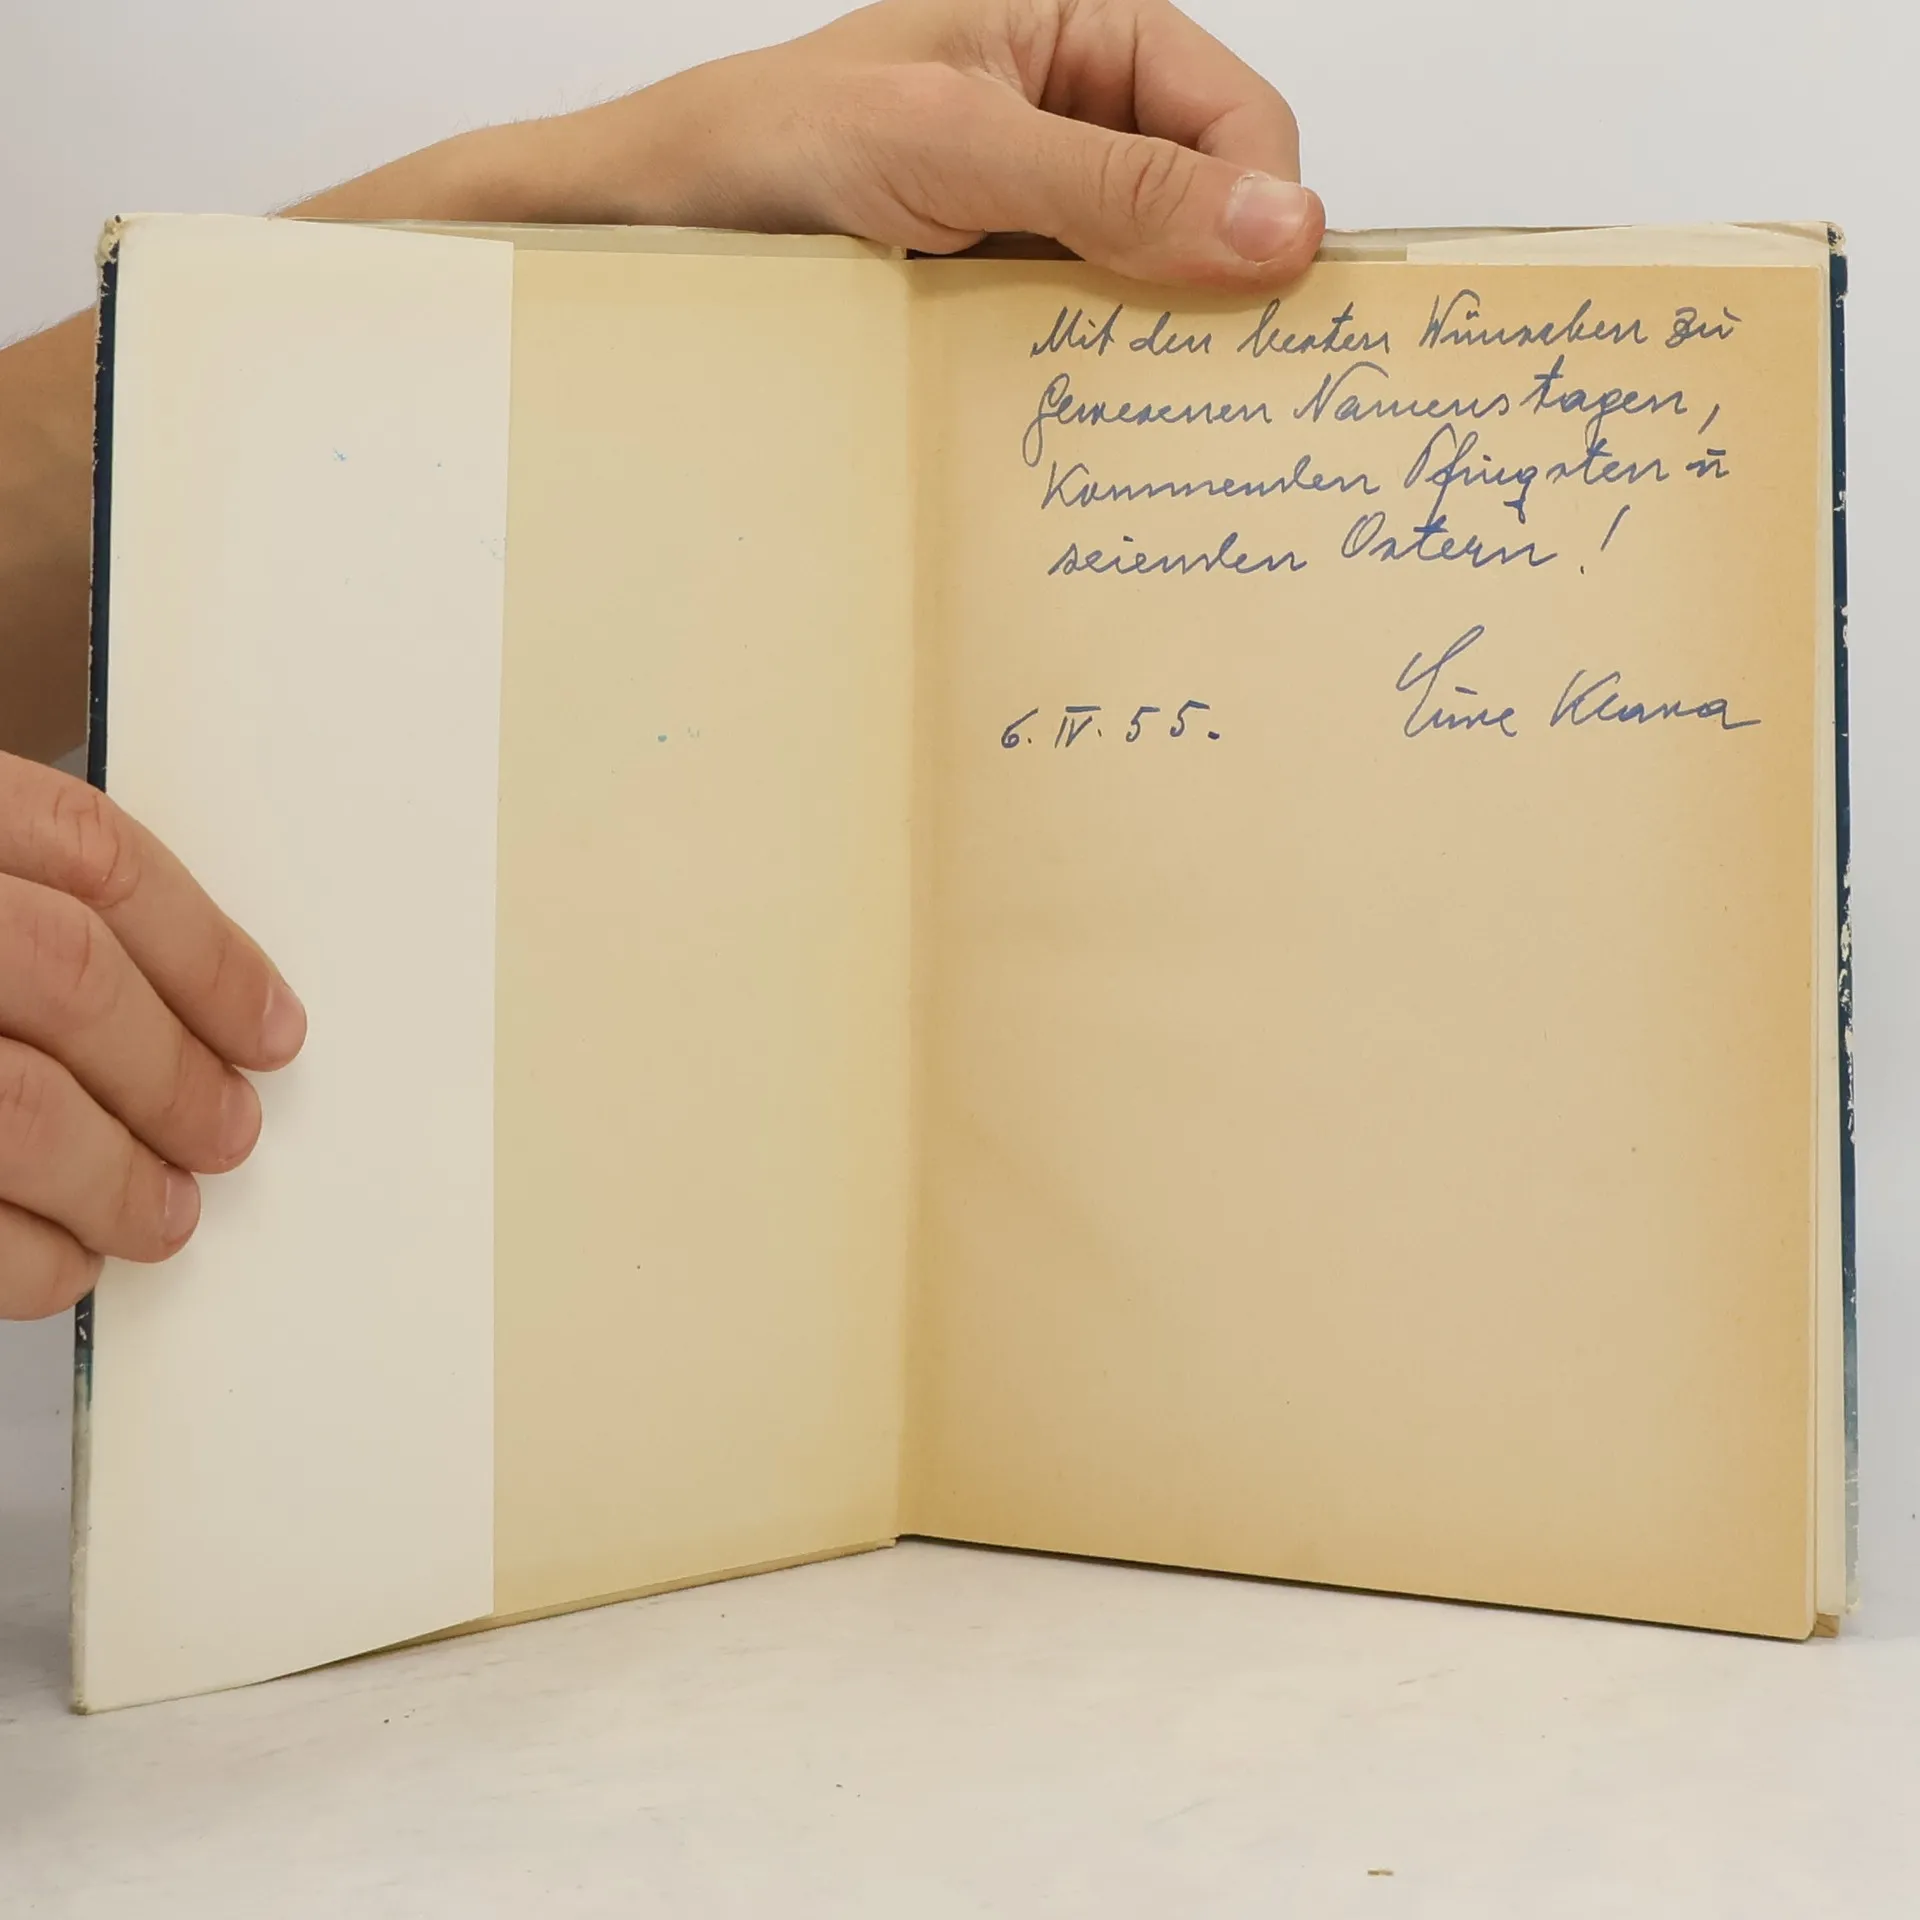 Mit den besten Wünschen zu
gewesenen Namenstagen,
kommenden Pfingsten u
seienden Ostern!
6. IV. 55. Eure Klara